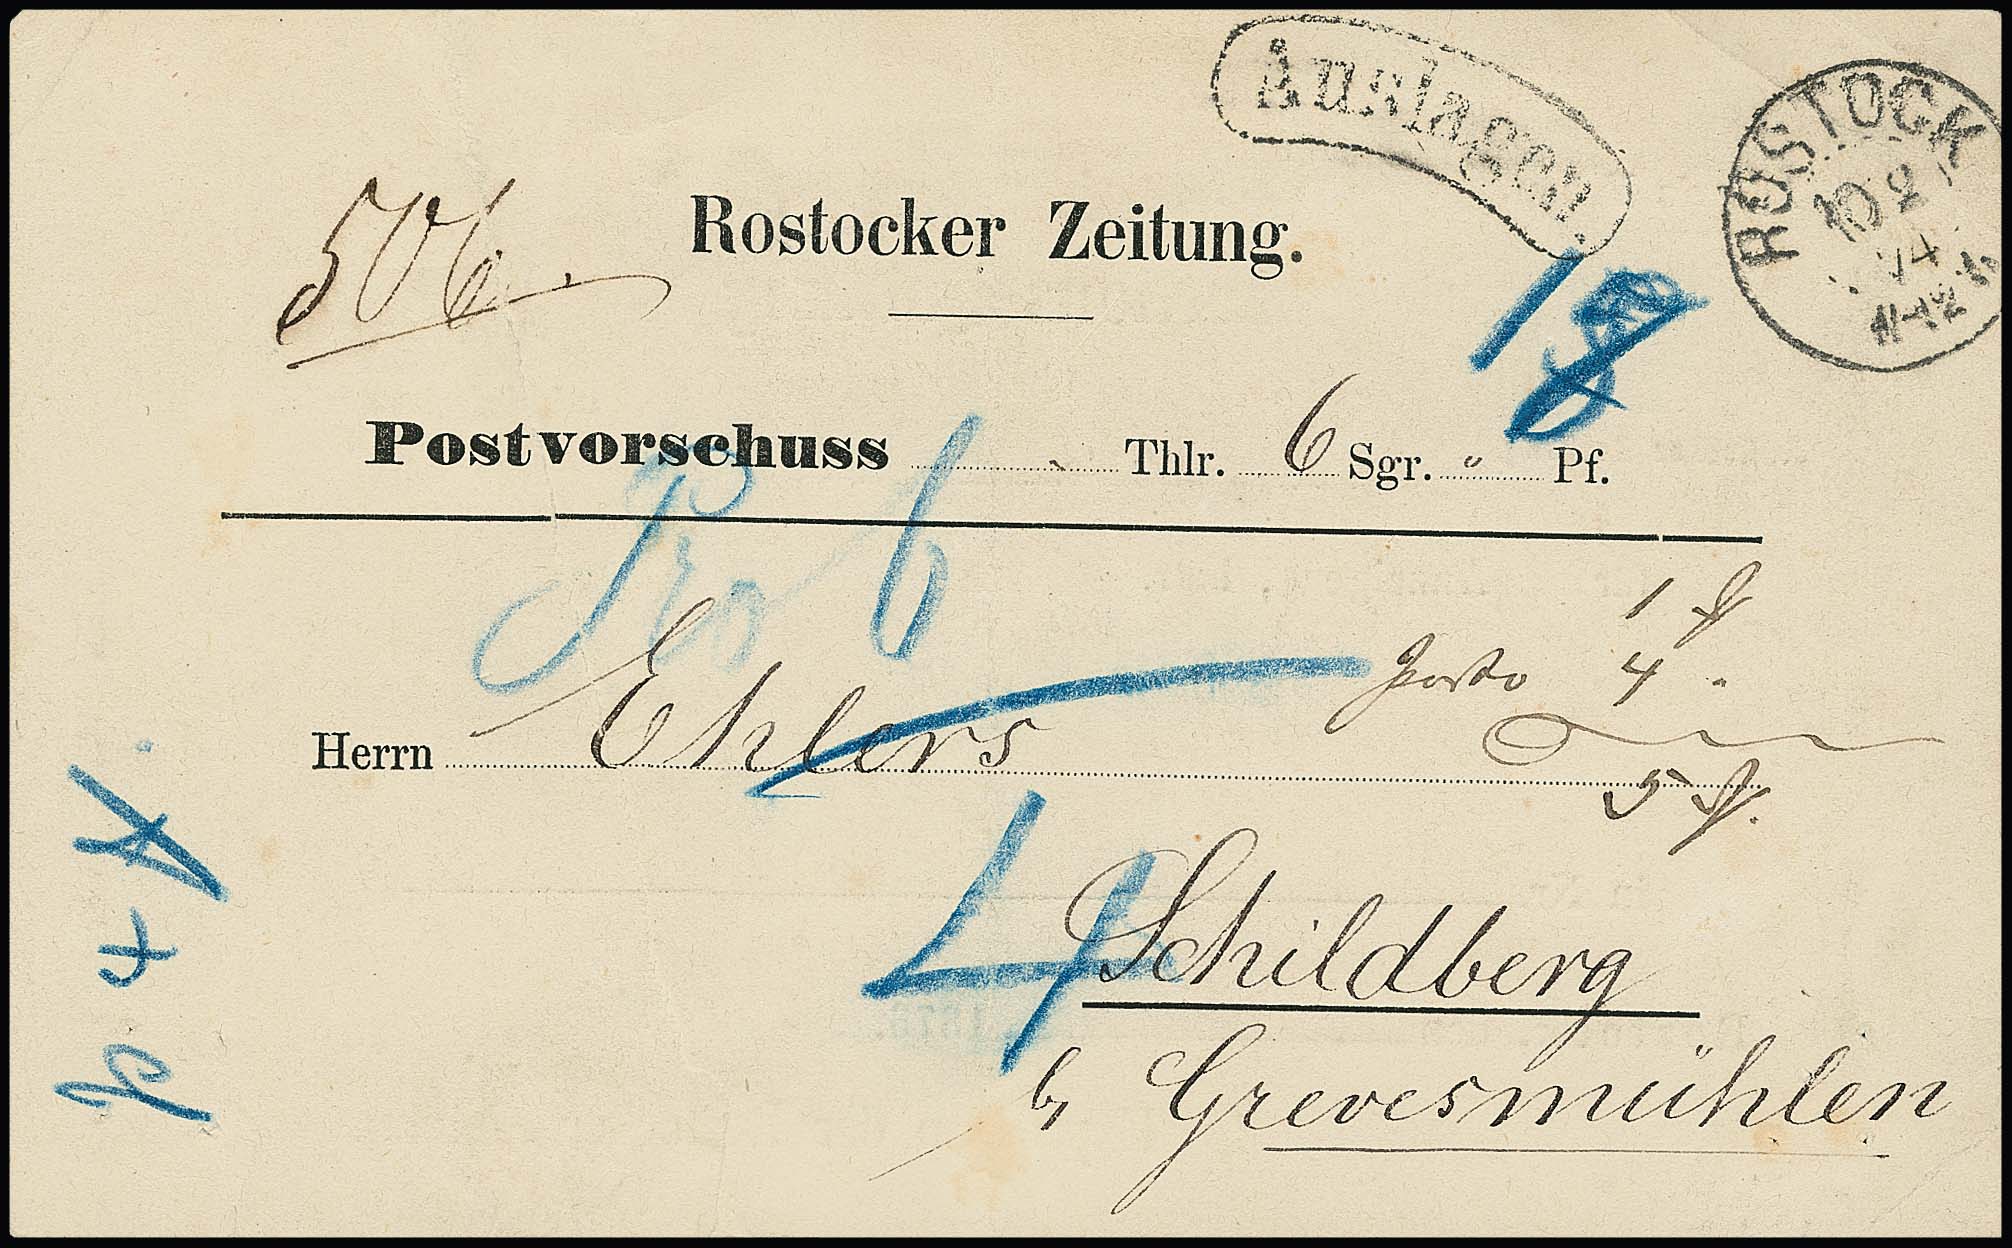 Auslagen.
ROSTOCK
10 2
74
11-12
506.
Rostocker Zeitung.
Postvorschuss Thlr. 6 Sgr. " Pf.
6
1
Porto 4 "
Herrn Ehlers
5
4
Schildberg
b/ Grevesmühlen
p 4